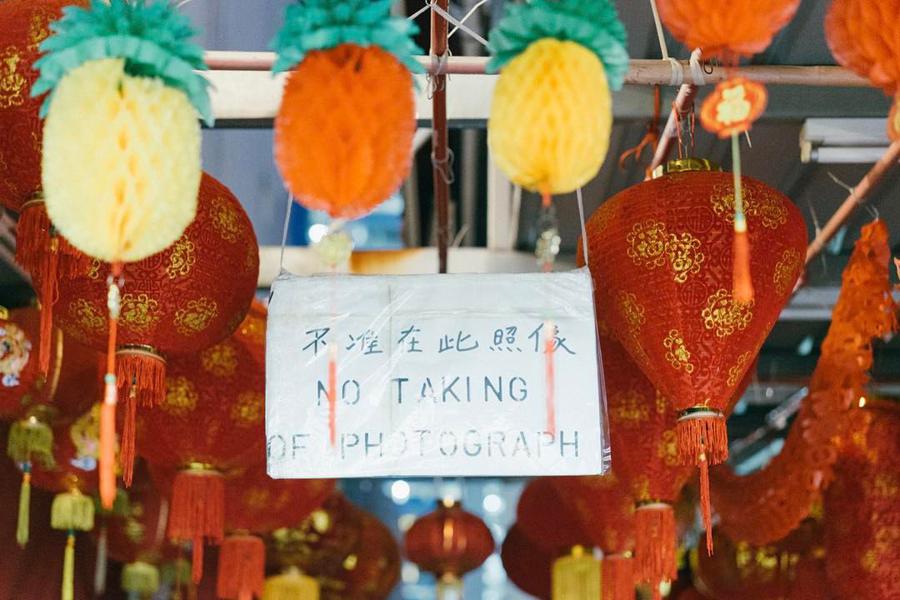 不准在此照像
NO TAKING
OF PHOTOGRAPH